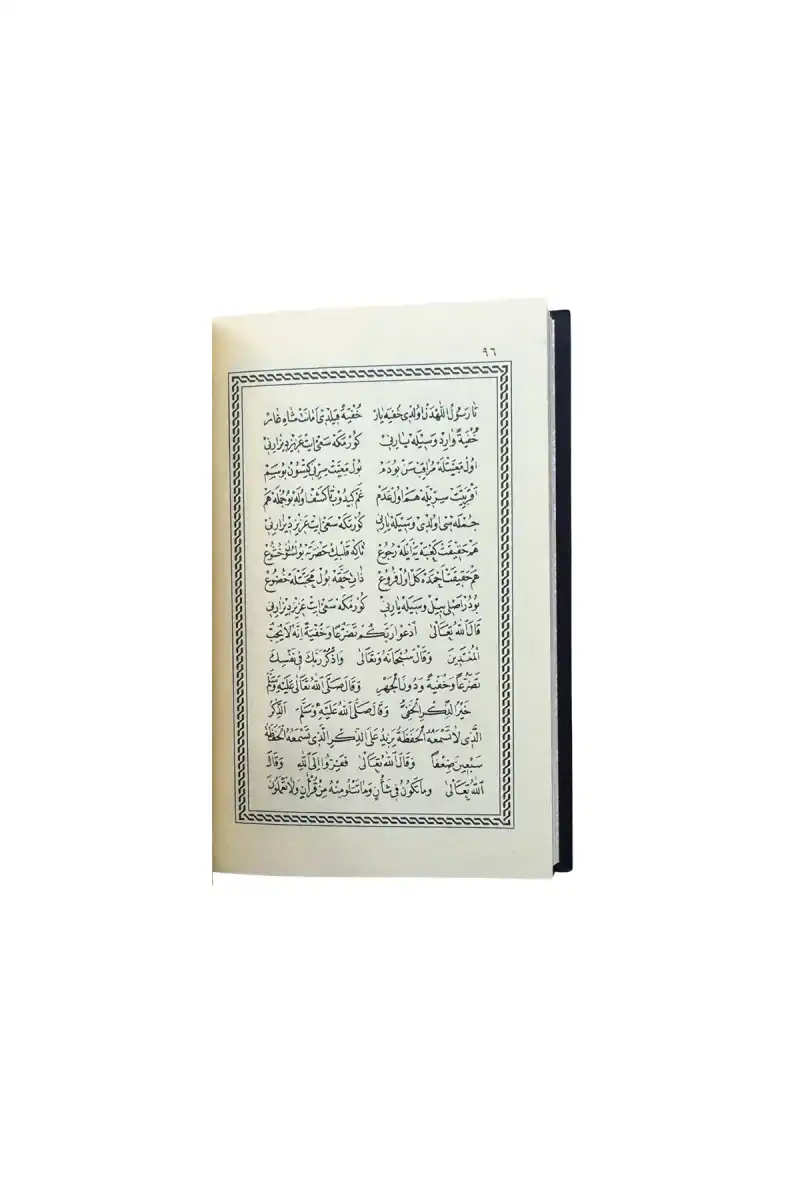 ٩٦
تا رسول اللهدن اولدی خفیه یار خفیه قیلدی امانت شاه غار
خفیهٔ وارد وسیله یاربی کورمکه سعی ایت عزیز دیزارنی
اول معیتله مراقب سن بودم بول معیت سرنی کتسون بو سیم
اقربیت سریله هم اول عدم غم کیدوب تا کشف اوله بو جمله هم
جمله سی اولدی وسیله یاربی کورمکه سعی ایت عزیز دیزارنی
هم حقیقت کعبه یه ایله رجوع تا که قلبک حضرته بولسون خشوع
هم حقیقت احمده کل اول فروع ذات حقه بول محبتله خضوع
بودر اصلی بیل وسیله یاربی کورمکه سعی ایت عزیز دیزارنی
قَالَ اللهُ تَعَالٰى اُدْعُوا رَبَّكُمْ تَضَرُّعًا وَخُفْيَةً اِنَّهُ لَا يُحِبُّ
الْمُعْتَدِينَ وَقَالَ سُبْحَانَهُ وَتَعَالٰى وَاذْكُرْ رَبَّكَ فِى نَفْسِكَ
تَضَرُّعًا وَخُفْيَةً وَدُونَ الْجَهْرِ وَقَالَ صَلَّى اللهُ تَعَالٰى عَلَيْهِ وَسَلَّمَ
خَيْرُ الذِّكْرِ الْخَفِىُّ وَقَالَ صَلَّى اللهُ عَلَيْهِ وَسَلَّمَ اَلذِّكْرُ
الَّذِى لَا تَسْمَعُهُ الْحَفَظَةُ يَزِيدُ عَلَى الذِّكْرِ الَّذِى تَسْمَعُهُ الْحَفَظَةُ
سَبْعِينَ ضِعْفًا وَقَالَ اللهُ تَعَالٰى فَفِرُّوا اِلَى اللهِ وَقَالَ
اللهُ تَعَالٰى وَمَا تَكُونُ فِى شَأْنٍ وَمَا تَتْلُو مِنْهُ مِنْ قُرْاٰنٍ وَلَا تَعْمَلُونَ